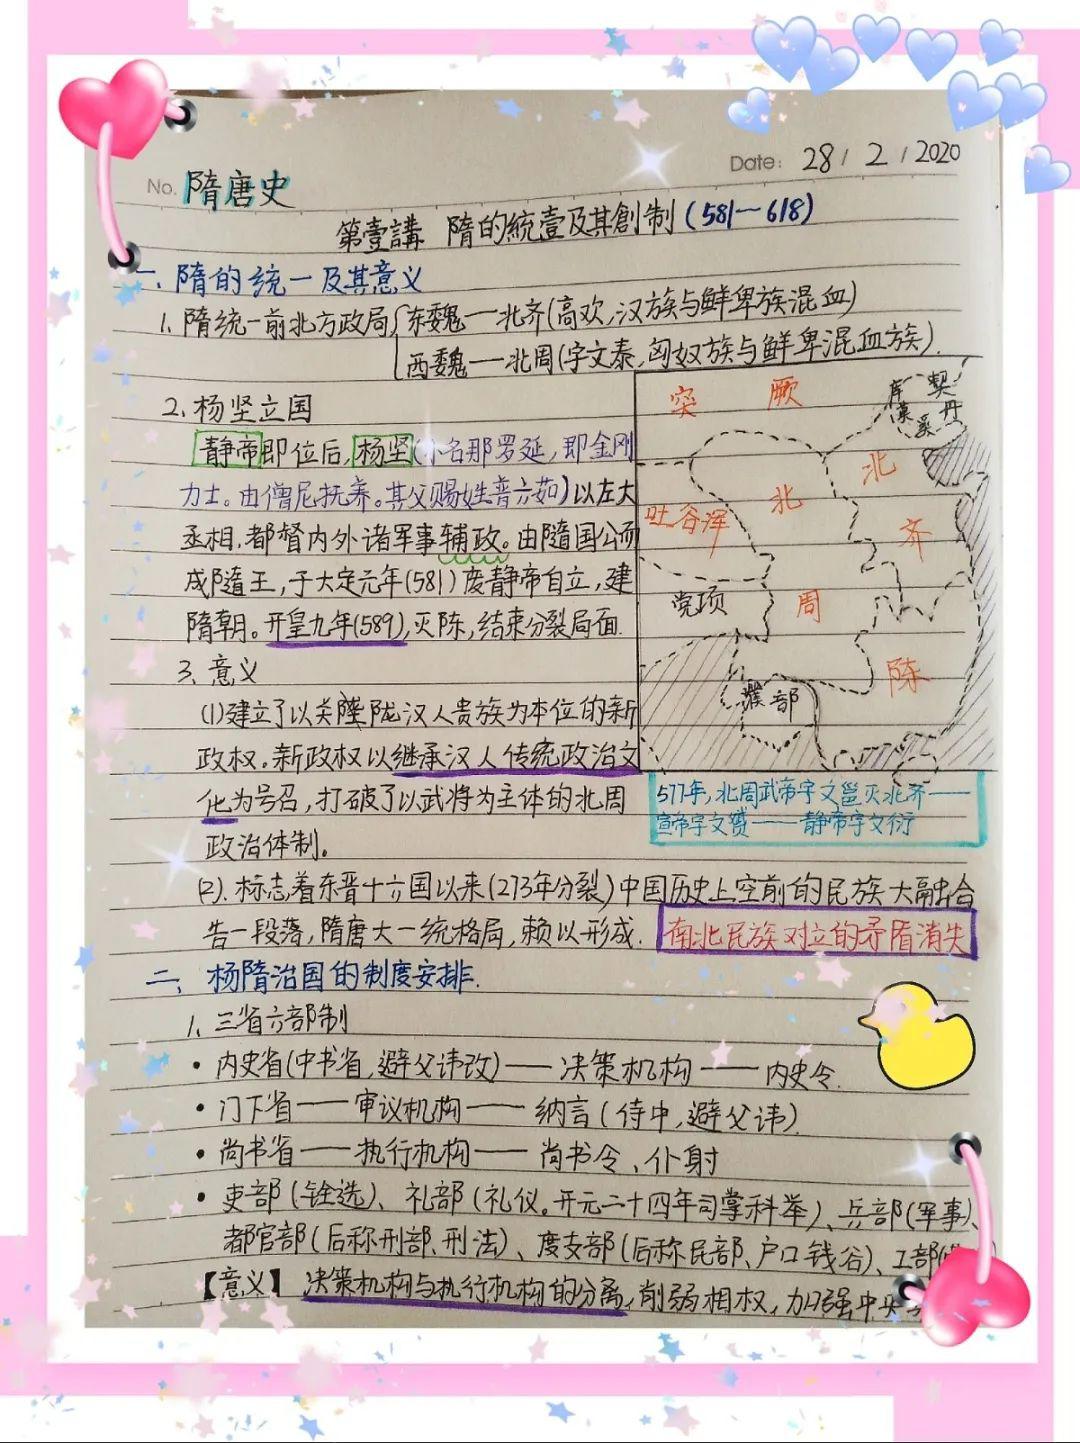 No. 隋唐史
Date: 28 / 2 / 2020
第壹講 隋的統壹及其創制(581—618)
一、隋的统一及其意义
1. 隋统一前北方政局{东魏——北齐(高欢,汉族与鲜卑族混血)
西魏——北周(宇文泰,匈奴族与鲜卑混血族).
2、杨坚立国
静帝即位后,杨坚(小名那罗延,即金刚
力士。由僧尼抚养。其父赐姓普六茹)以左大
丞相,都督内外诸军事辅政。由随国公而
成随王,于大定元年(581)废静帝自立,建
隋朝。开皇九年(589),灭陈,结束分裂局面.
突厥
库莫奚
契丹
北齐
吐谷浑
北周
党项
陈
濮部
577年,北周武帝宇文邕灭北齐——
宣帝宇文赟——静帝宇文衍
3、意义
(1)建立了以关陇汉人贵族为本位的新
政权。新政权以继承汉人传统政治文
化为号召,打破了以武将为主体的北周
政治体制。
(2).标志着东晋十六国以来(273年分裂)中国历史上空前的民族大融合
告一段落,隋唐大一统格局,赖以形成. 南北民族对立的矛盾消失
二、杨隋治国的制度安排.
1、三省六部制
• 内史省(中书省,避父讳改)——决策机构——内史令.
• 门下省——审议机构——纳言(侍中,避父讳).
• 尚书省——执行机构——尚书令、仆射
• 吏部(铨选)、礼部(礼仪。开元二十四年司掌科举)、兵部(军事)、
都官部(后称刑部、刑法)、度支部(后称民部、户口钱谷)、工部(
【意义】决策机构与执行机构的分离,削弱相权,加强中央